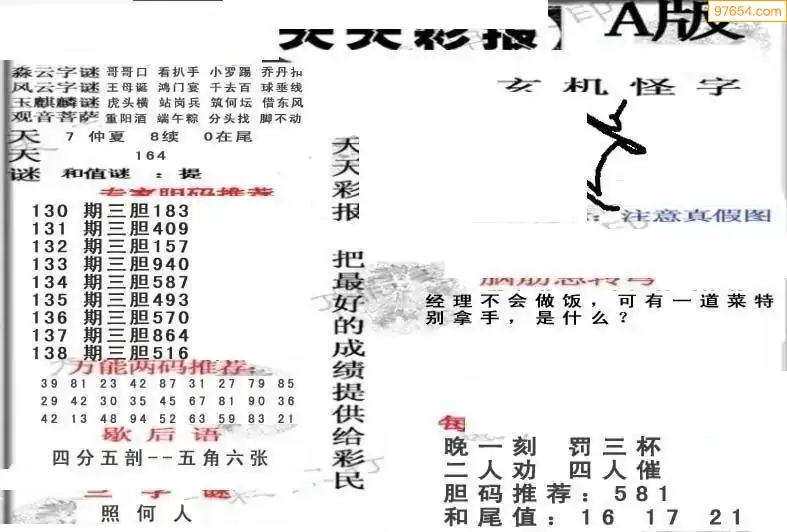 97654.com
天天彩报 A版
森云字谜 哥哥口 看扒手 小罗踢 乔丹扣
风云字谜 王母诞 鸿门宴 千去百 球垂线
玉麒麟谜 虎头横 站岗兵 筑何坛 借东风
观音菩萨 重阳酒 端午粽 分头找 脚不动
天 7 仲夏 8续 0在尾
天 164
谜 和值谜 : 提
专家胆码推荐
130 期三胆183
131 期三胆409
132 期三胆157
133 期三胆940
134 期三胆587
135 期三胆493
136 期三胆570
137 期三胆864
138 期三胆516
万能两码推荐:
39 81 23 42 87 31 27 79 85
29 42 30 35 45 67 81 90 36
42 13 48 94 52 63 59 83 21
歇后语
四分五剖--五角六张
三字谜
照何人
天天彩报 把最好的成绩提供给彩民
玄机怪字
: 注意真假图
脑筋急转弯
经理不会做饭，可有一道菜特
别拿手，是什么？
晚一刻 罚三杯
二人劝 四人催
胆码推荐：581
和尾值：16 17 21